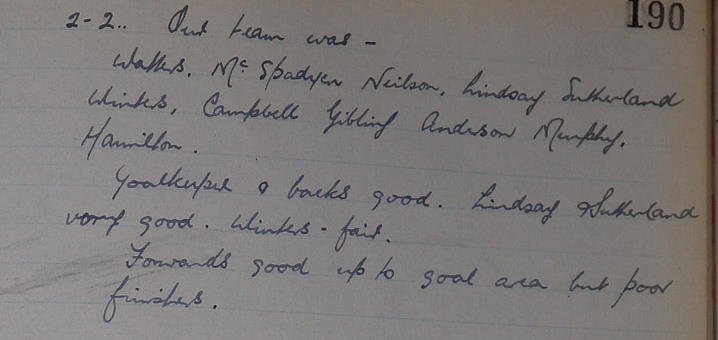 190
2-2.. Our team was -
Watters. Mc Spadyen Neilson, Lindsay Sutherland
Winters, Campbell Gibling Anderson Murphy,
Hamilton.
Goalkeeper & backs good. Lindsay & Sutherland
very good. Winters - fair.
Forwards good up to goal area but poor
finishers.